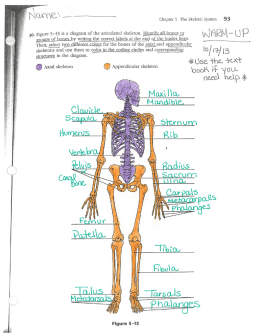 Name:
Chapter 5 The Skeletal System 93
WARM-UP
10/17/13
*Use the text
book if you
need help*
10. Figure 5-13 is a diagram of the articulated skeleton. Identify all bones or
groups of bones by writing the correct labels at the end of the leader lines.
Then, select two different colors for the bones of the axial and appendicular
skeletons and use them to color in the coding circles and corresponding
structures in the diagram.
Axial skeleton
Appendicular skeleton
Maxilla
Mandible
Clavicle
Scapula
Sternum
Rib
Humerus
Vertebra
Pelvis
Radius
Coxal
Bone
Sacrum
Ulna
Carpals
Metacarpals
Phalanges
Femur
Patella
Tibia
Fibula
Talus
Metatarsals
Tarsals
Phalanges
Figure 5-13